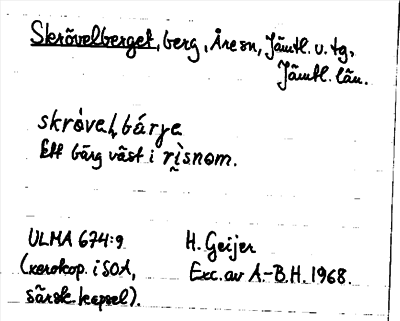 Skrövelberget, berg, Åre sn, Jämtl. v. tg,
Jämtl. län.
skròvel bárje
Ett bärg väst i rìsnom.
ULMA 674:9 H. Geijer
(xerokop. i SOA, Exc. av A.-B.H. 1968.
särsk. kapsel).